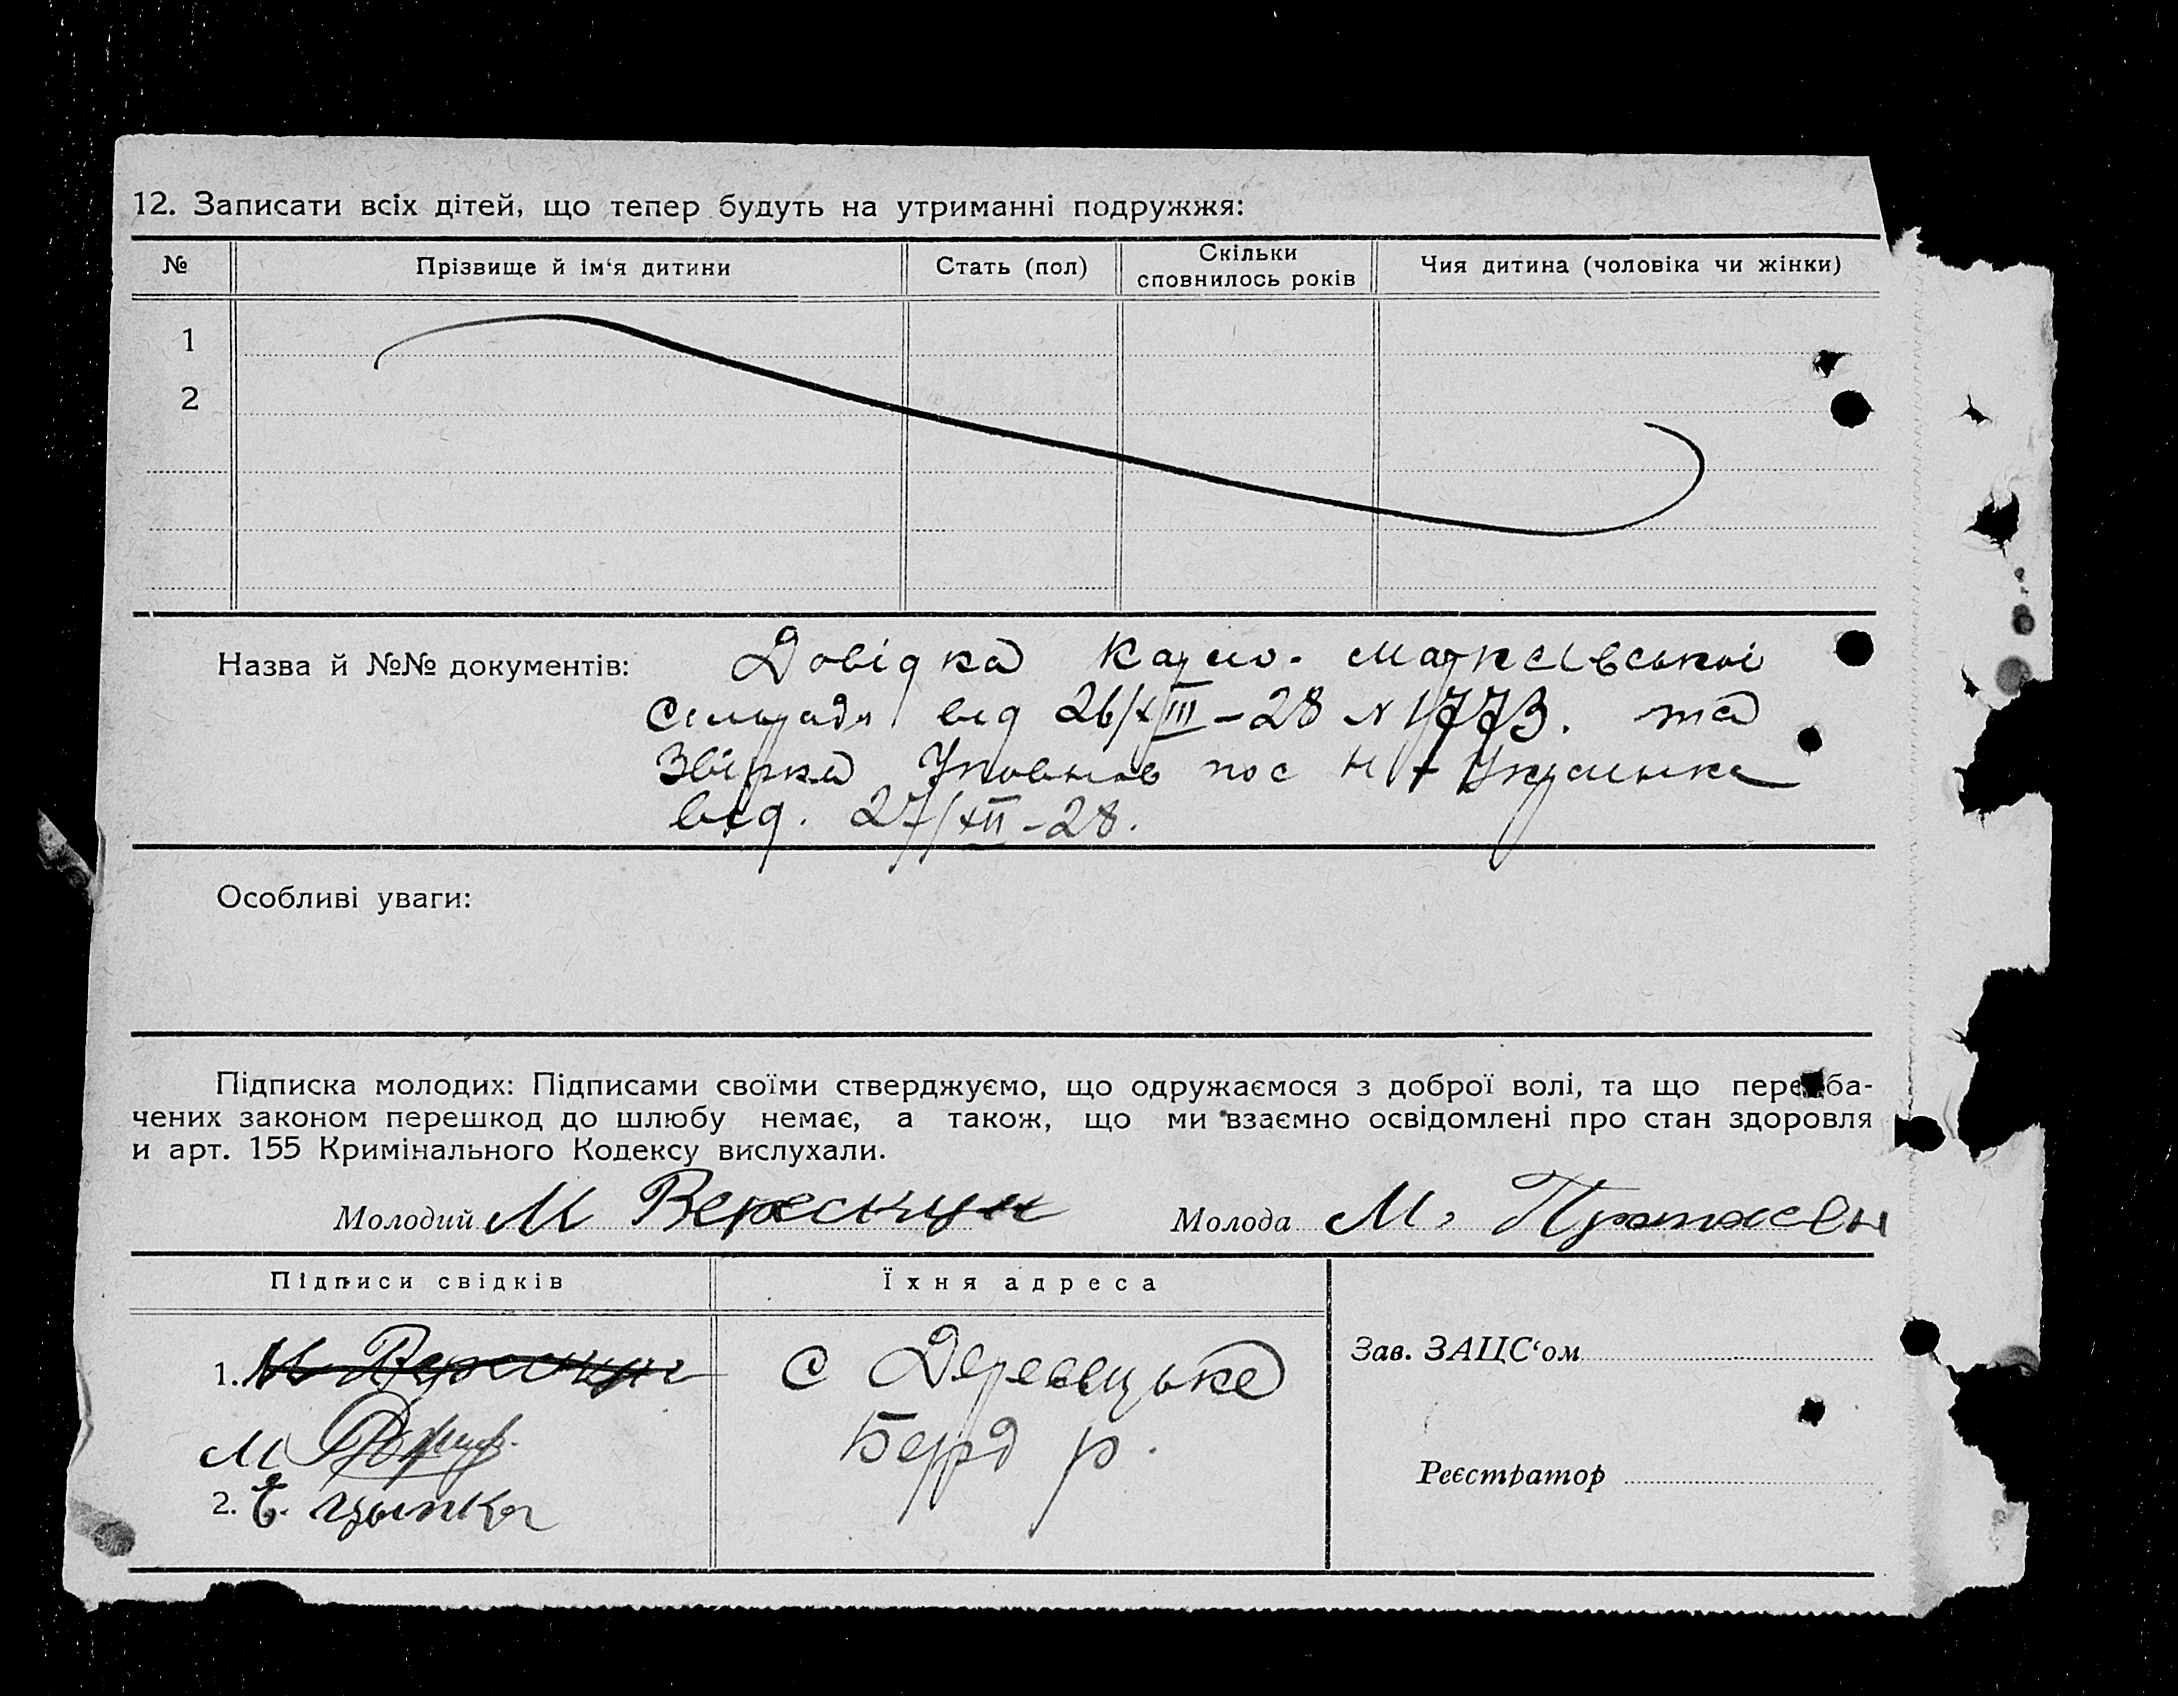 12. Записати всіх дітей, що тепер будуть на утриманні подружжя:
№ Прізвище й ім‘я дитини Стать (пол) Скільки сповнилось років Чия дитина (чоловіка чи жінки)
1
2
Назва й №№ документів: Довідка
від 26/XIII-28 N 1773. та
від. 27/XII-28.
Особливі уваги:
Підписка молодих: Підписами своїми стверджуємо, що одружаємося з доброї волі, та що передба-
чених законом перешкод до шлюбу немає, а також, що ми взаємно освідомлені про стан здоровля
и арт. 155 Кримінального Кодексу вислухали.
Молодий М Верескун Молода М.
Підписи свідків Їхня адреса
1. М Верескун С Деревецьке
Зав. ЗАЦС‘ом
М Берд р.
Реєстратор
2. Є.